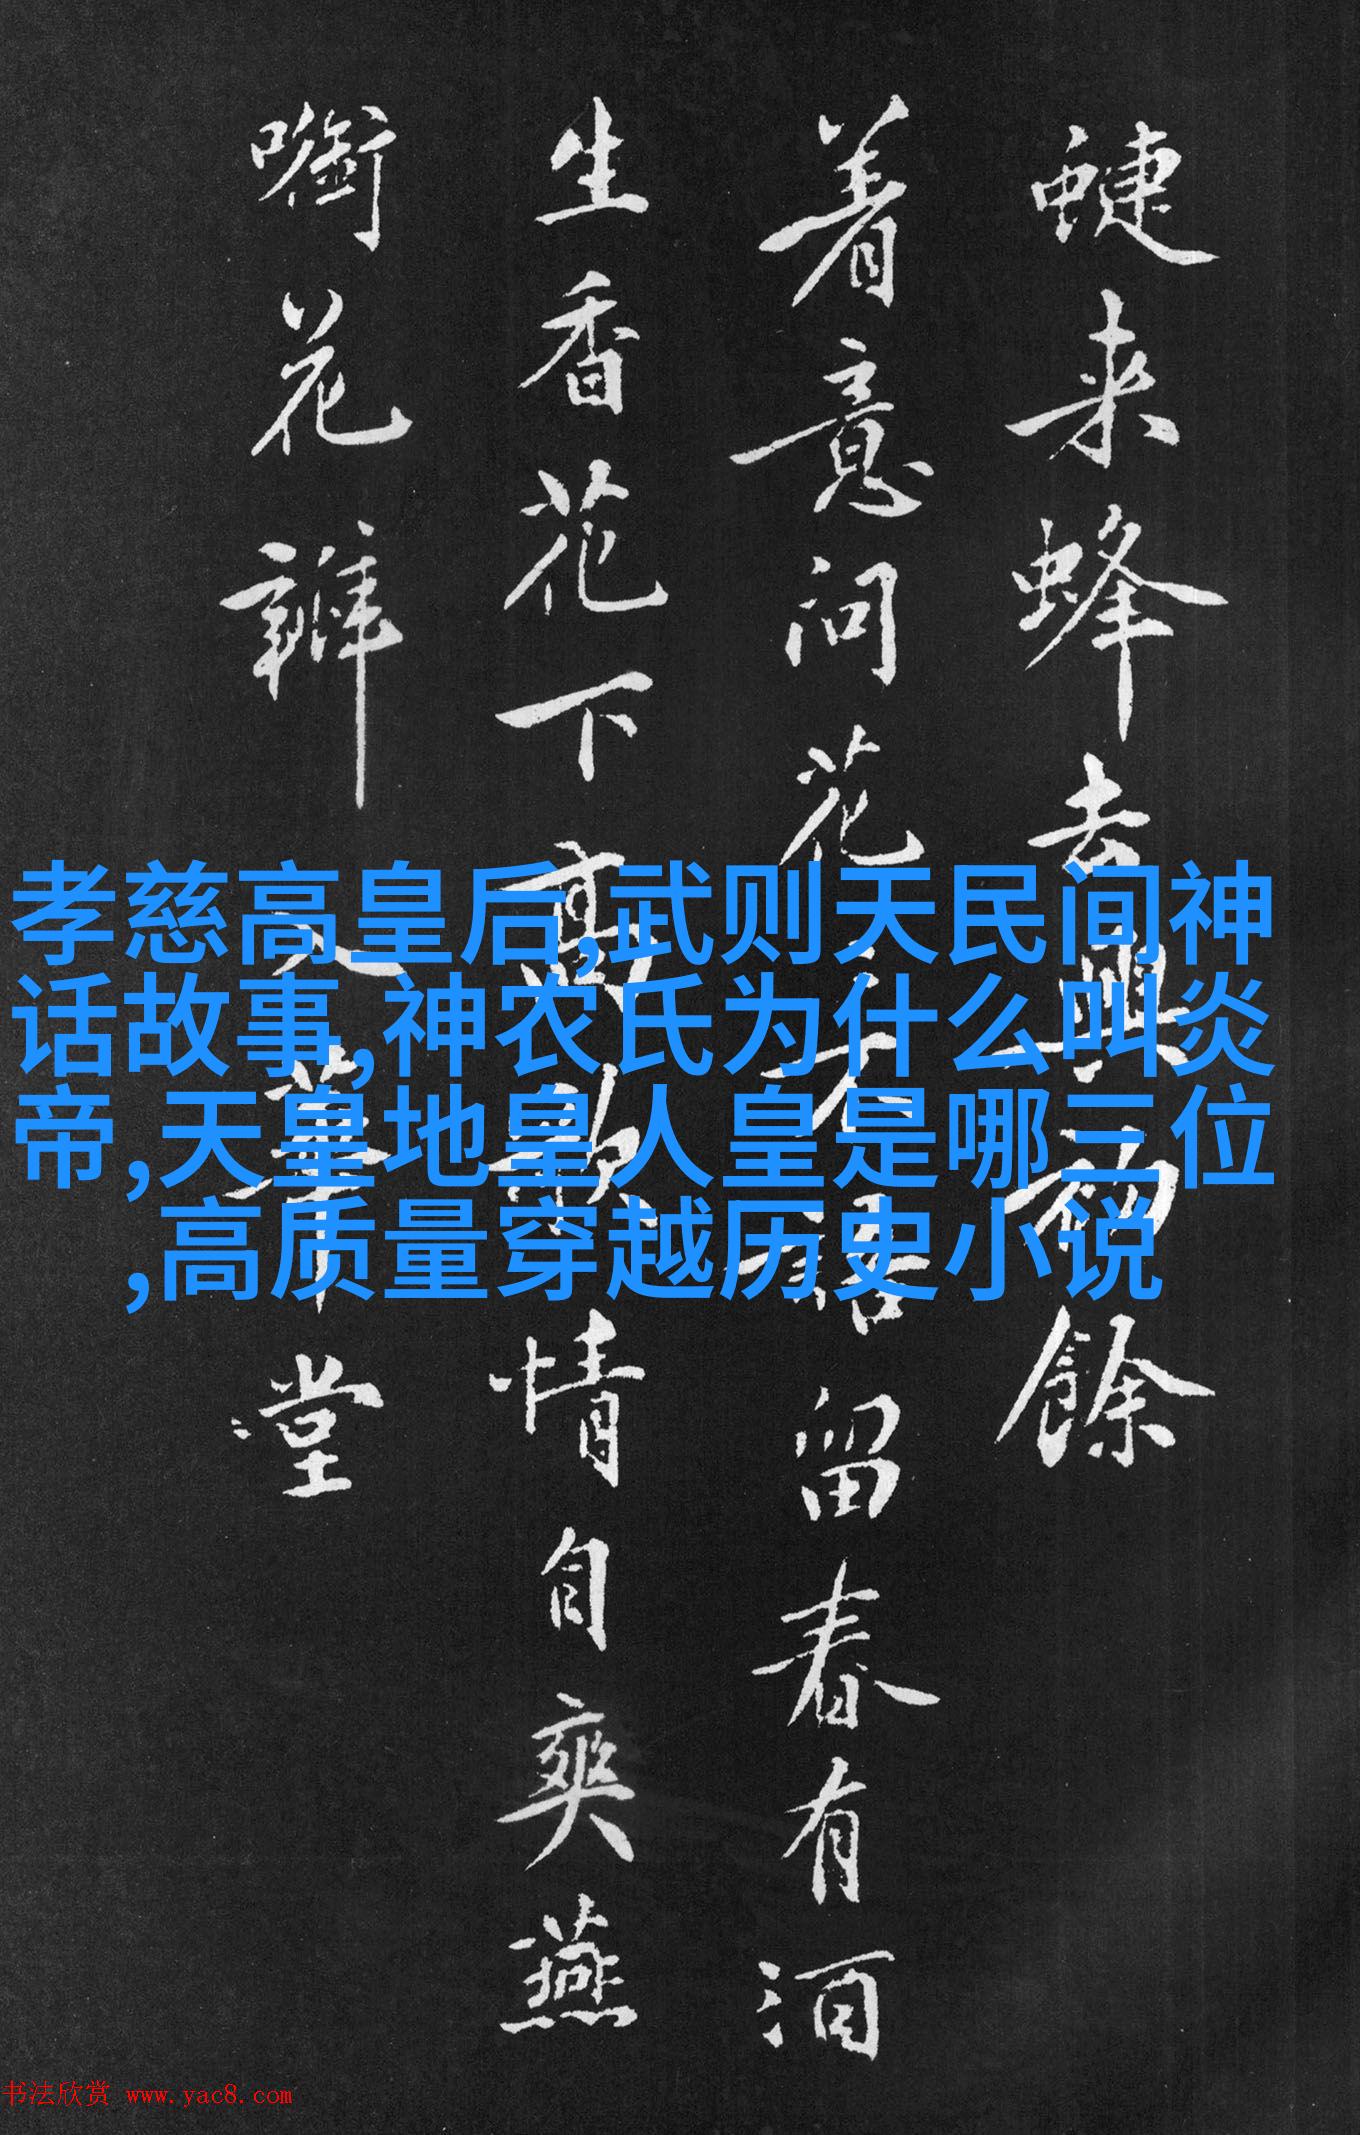 蜨来蜂去興初餘
着意问花不語留春有酒
生香花下高歌情自爽燕
花瓣入華堂
孝慈高皇后,武则天民间神
话故事,神农氏为什么叫炎
帝,天皇地皇人皇是哪三位
,高质量穿越历史小说
书法欣赏 www.yac8.com